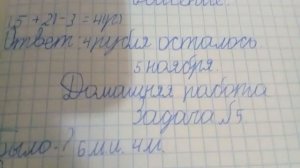 15 + 21 - 3 =
Ответ: 4 рубля осталось.
5 ноября.
Домашняя работа
Задача №5
Было - ? 6 м и 4 м